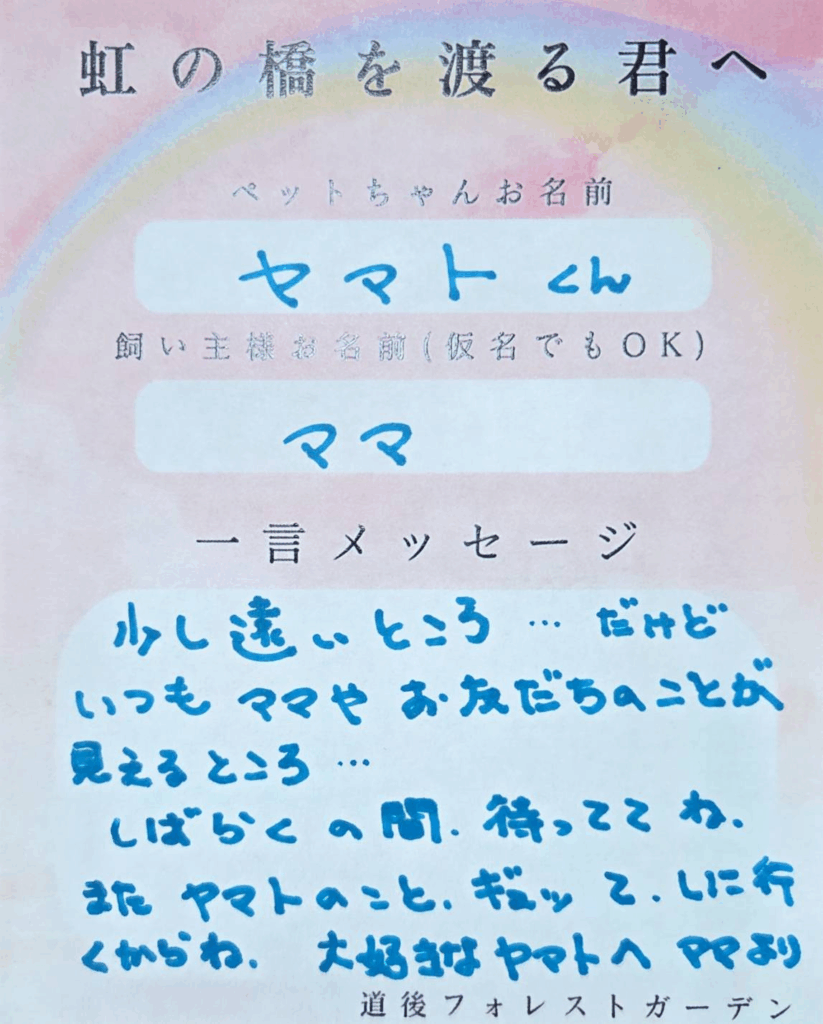 虹の橋を渡る君へ
ペットちゃんお名前
ヤマトくん
飼い主様お名前(仮名でもOK)
ママ
一言メッセージ
少し遠いところ… だけど
いつもママやお友だちのことが
見えるところ…
しばらくの間、待っててね、
またヤマトのこと、ギュッて、しに行
くからね、 大好きなヤマトへ ママより
道後フォレストガーデン